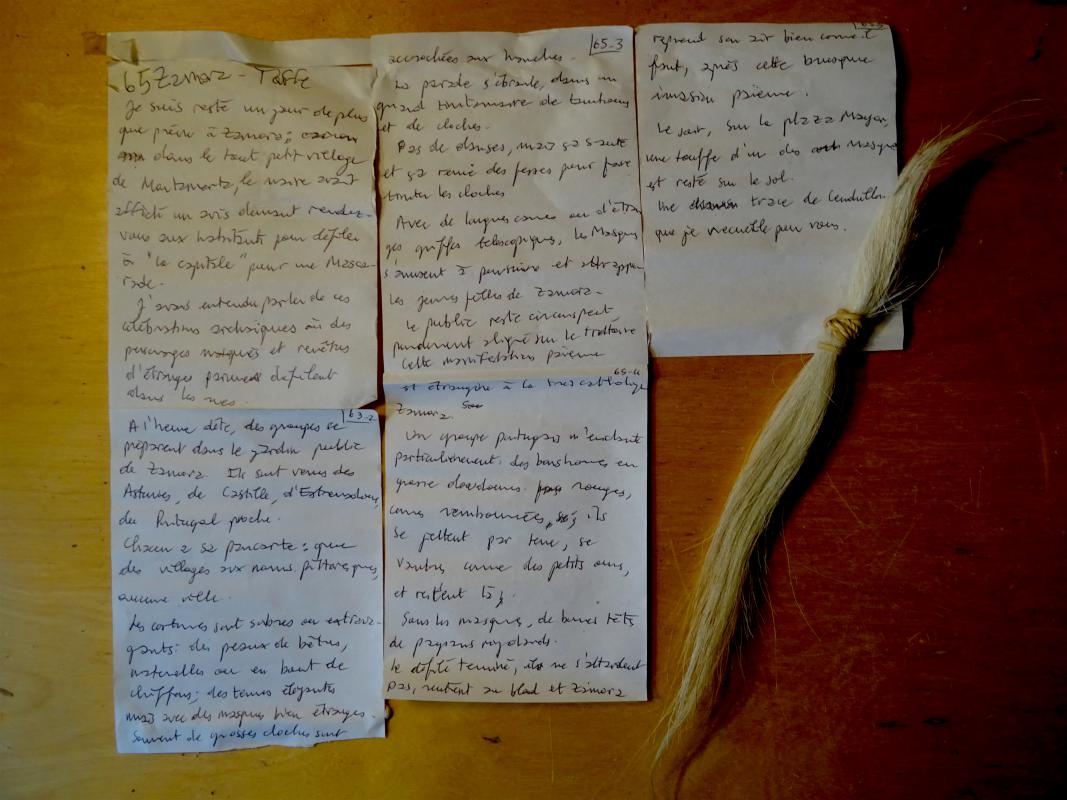 65 Zamora - Touffe
Je suis resté un jour de plus
que prévu à Zamora;
dans le tout petit village
de Montamarta, le maire avait
affiché un avis donnant rendez-
vous aux habitants pour défiler
à "la capitale" pour une Masca-
rade.
J'avais entendu parler de ces
célébrations archaïques où des
personnages masqués et revêtus
d'étranges parures défilent
dans les rues.
65-2
A l'heure dite, des groupes se
préparent dans le jardin public
de Zamora. Ils sont venus des
Asturies, de Castille, d'Estremadure,
du Portugal proche.
Chacun a sa pancarte: que
des villages aux noms pittoresques,
aucune ville.
Les costumes sont sobres ou extrava-
gants: des peaux de bêtes,
naturelles ou en bout de
chiffons; des tenues élégantes
mais avec des masques bien étranges.
Souvent de grosses cloches sont
65-3
accrochées aux hanches.
La parade s'ébranle, dans un
grand tintamarre de tambours
et de cloches.
Pas de danses, mais ça saute
et ça remue des fesses pour faire
tinter les cloches
Avec de longues cannes ou d'étran-
ges griffes télescopiques, les Masques
s'amusent à poursuivre et attraper
les jeunes filles de Zamora.
Le public reste circonspect,
prudemment aligné sur le trottoir
Cette manifestation païenne
65-4
est étrangère à la très catholique
Zamora.
Un groupe portugais m'enchante
particulièrement: des bonshommes en
grosse rouges,
comme rembourrés, ils
se jettent par terre, se
vautrent comme des petits ours,
et restent là.
Sous les masques, de bonnes têtes
de paysans rigolards.
Le défilé terminé, ils ne s'attardent
pas, rentrent au bled et Zamora
reprend son air bien comme il
faut, après cette brusque
invasion païenne.
Le soir, sur la plaza Mayor,
une touffe d'un des Masques
est resté sur le sol.
Une trace de
que je recueille pour vous.